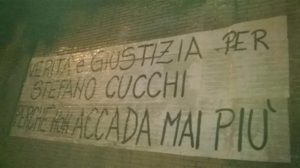 VERITÀ e GIUSTIZIA PER
STEFANO CUCCHI
PERCHÈ NON ACCADA MAI PIÙ